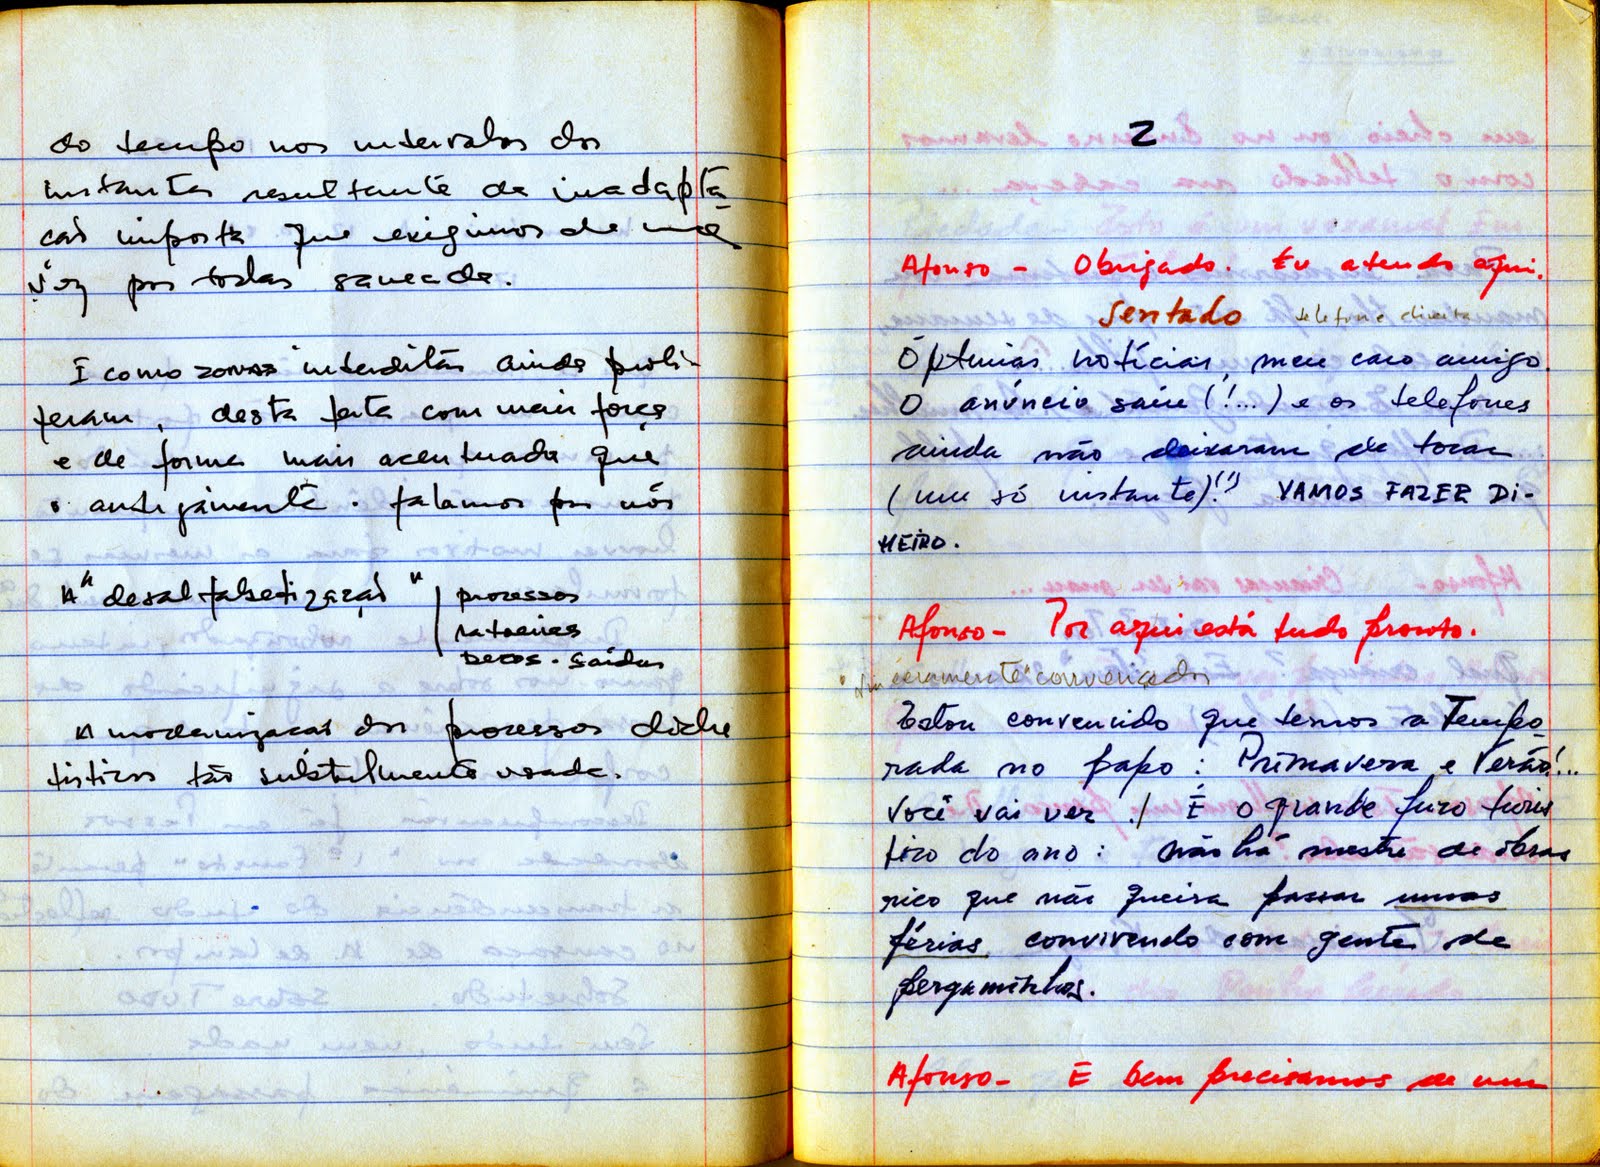 do tempo nos intervalos dos
instantes resultante da inadapta
ção imposta que exigimos de uma
vez por todas saneada.
E como zonas interditas ainda proli-
feram, desta feita com mais força
e de forma mais acentuada que
antigamente. falamos por nós
A "desalfabetização"
processos
Decos. Saídas
A modernização dos processos
tão subtilmente usada.
2
Afonso - Obrigado. Eu atendo aqui.
Sentado telefone direita
Óptimas notícias, meu caro amigo.
O anúncio saiu (!...) e os telefones
ainda não deixaram de tocar
(um só instante)!") VAMOS FAZER DI-
NHEIRO.
Afonso - Por aqui está tudo pronto.
"Sinceramente" convencido
Estou convencido que temos a Tempo
rada no papo: Primavera e Verão!...
Você vai ver ./ É o grande furo turís
tico do ano: não há mestre de obras
rico que não queira passar umas
férias convivendo com gente de
pergaminhos.
Afonso - E bem precisamos de um